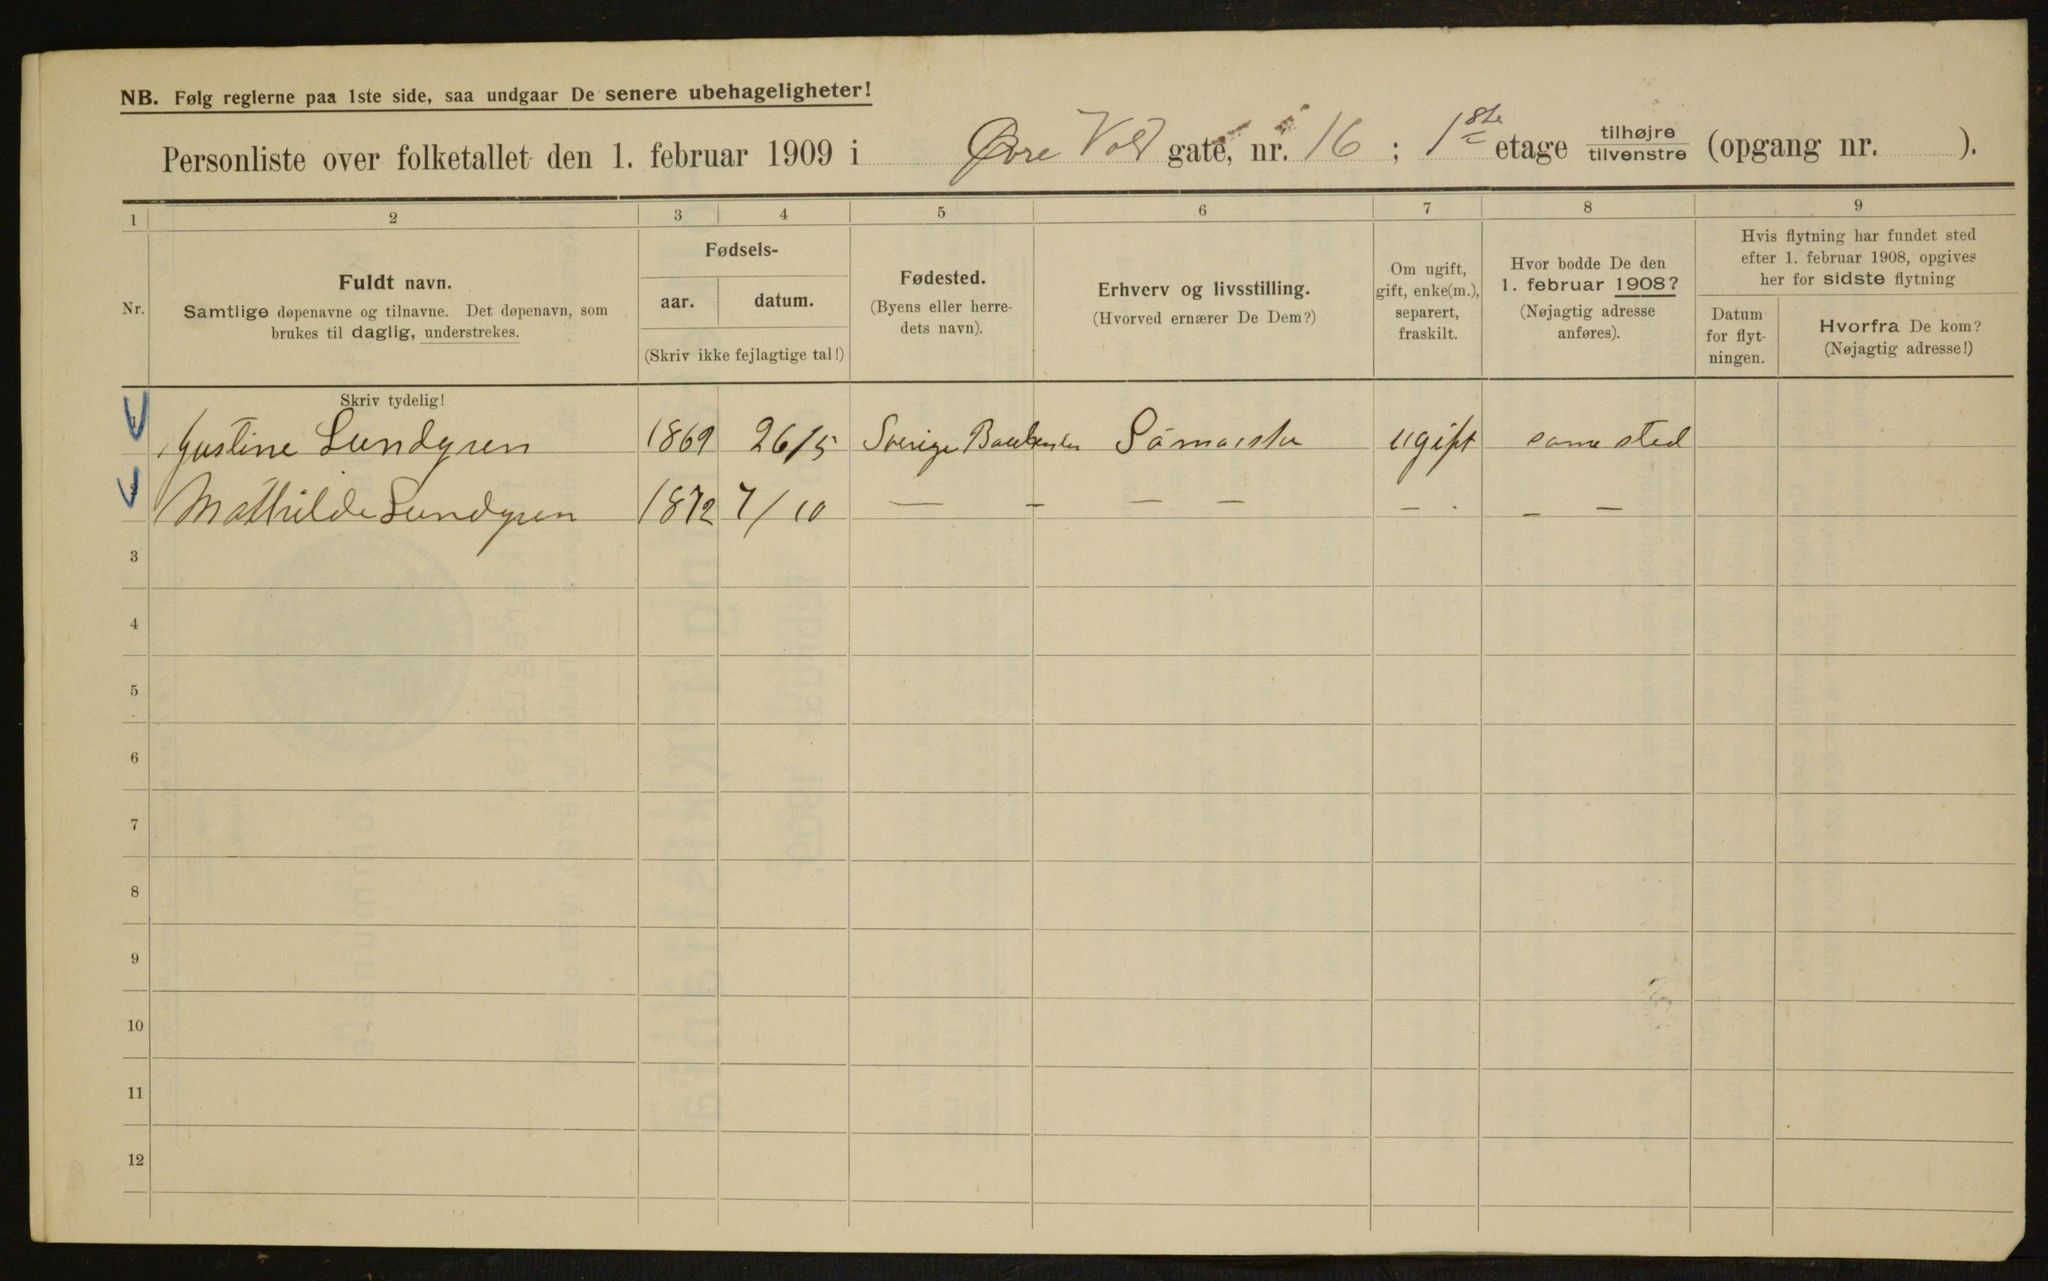 NB. Følg reglerne paa 1ste side, saa undgaar De senere ubehageligheter!
Personliste over folketallet den 1. februar 1909 i Øvre Vold gate, nr. 16 ; 1ste etage tilhøjre tilvenstre (opgang nr. ).
1 2 3 4 5 6 7 8 9
Nr.
Fuldt navn.
Samtlige døpenavne og tilnavne. Det døpenavn, som
brukes til daglig, understrekes.
Skriv tydelig!
Fødsels-
aar. datum.
(Skriv ikke fejlagtige tal!)
Fødested.
(Byens eller herre-
dets navn).
Erhverv og livsstilling.
(Hvorved ernærer De Dem?)
Om ugift,
gift, enke(m.),
separert,
fraskilt.
Hvor bodde De den
1. februar 1908?
(Nøjagtig adresse
anføres).
Hvis flytning har fundet sted
efter 1. februar 1908, opgives
her for sidste flytning
Datum
for flyt-
ningen.
Hvorfra De kom?
(Nøjagtig adresse!)
Justine Lundgren 1869 26/5 Sverige ugift same sted
Mathilde Lundgren 1872 7/10 — – — — – – —
3
4
5
6
7
8
9
10
11
12